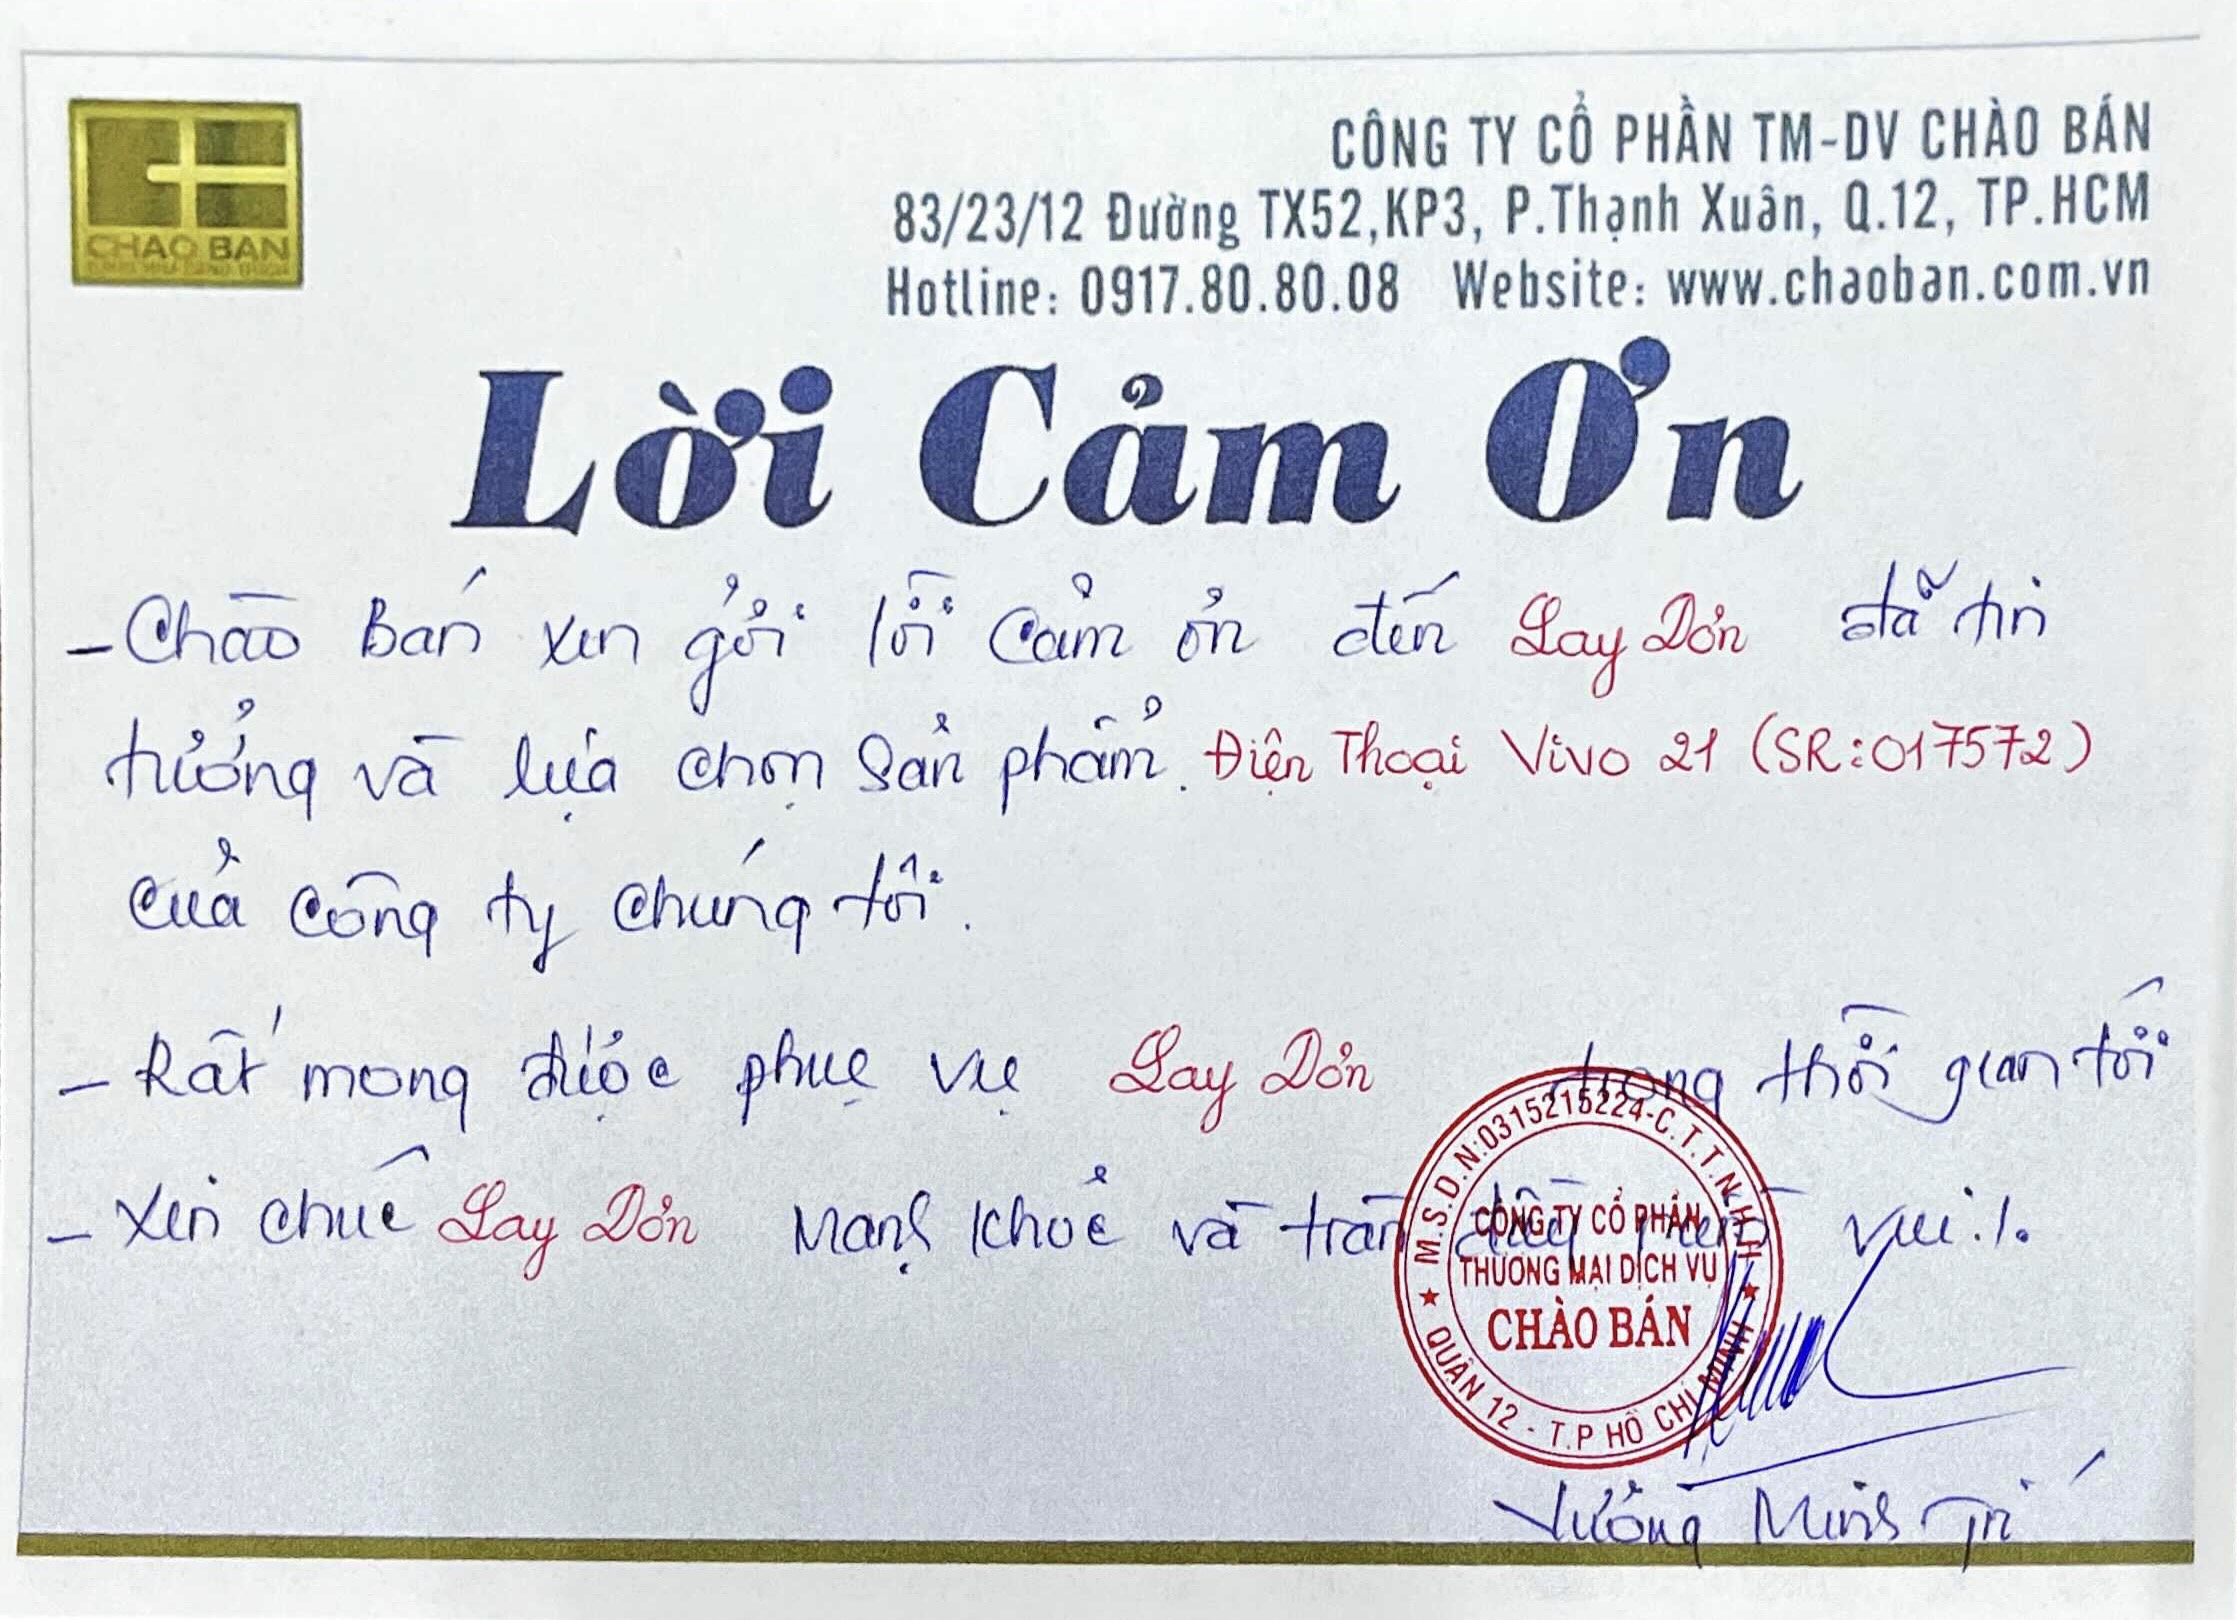 CHAO BAN
CÔNG TY CỔ PHẦN TM-DV CHÀO BÁN
83/23/12 Đường TX52,KP3, P.Thạnh Xuân, Q.12, TP.HCM
Hotline: 0917.80.80.08 Website: www.chaoban.com.vn
Lời Cảm Ơn
- Chào Bán xin gởi lời cảm ơn đến Lay Dơn đã tin
tưởng và lựa chọn sản phẩm. Điện Thoại Vivo 21 (SR:017572)
của công ty chúng tôi.
- Rất mong được phục vụ Lay Dơn trong thời gian tới
- Xin chúc Lay Dơn mạnh khoẻ và tràn đầy niềm vui./.
M.S.D.N:0315215224-C.T.T.N.H.H
CÔNG TY CỔ PHẦN
THƯƠNG MẠI DỊCH VỤ
CHÀO BÁN
QUẬN 12 - T.P HỒ CHÍ MINH
Vương Minh Trí